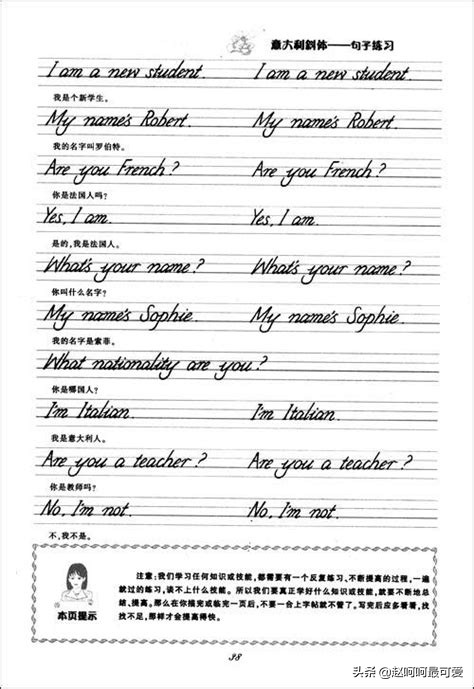 意大利斜体——句子练习
I am a new student. I am a new student.
我是个新学生。
My name's Robert. My name's Robert.
我的名字叫罗伯特。
Are you French? Are you French?
你是法国人吗?
Yes, I am. Yes, I am.
是的,我是法国人。
What's your name? What's your name?
你叫什么名字?
My name's Sophie. My name's Sophie.
我的名字是索菲。
What nationality are you?
你是哪国人?
I'm Italian. I'm Italian.
我是意大利人。
Are you a teacher? Are you a teacher?
你是教师吗?
No, I'm not. No, I'm not.
不,我不是。
注意:我们学习任何知识或技能,都需要有一个反复练习、不断提高的过程,一遍
就过的练习,谈不上什么技能。所以我们要真正学好什么知识或技能,就要不断地总
结、提高。那么在你描完或临完一页后,不要一合上字帖就不管了。写完后应多看看,找
找不足,那样才会提高得快。
本页提示
38
头条 @赵呵呵最可爱